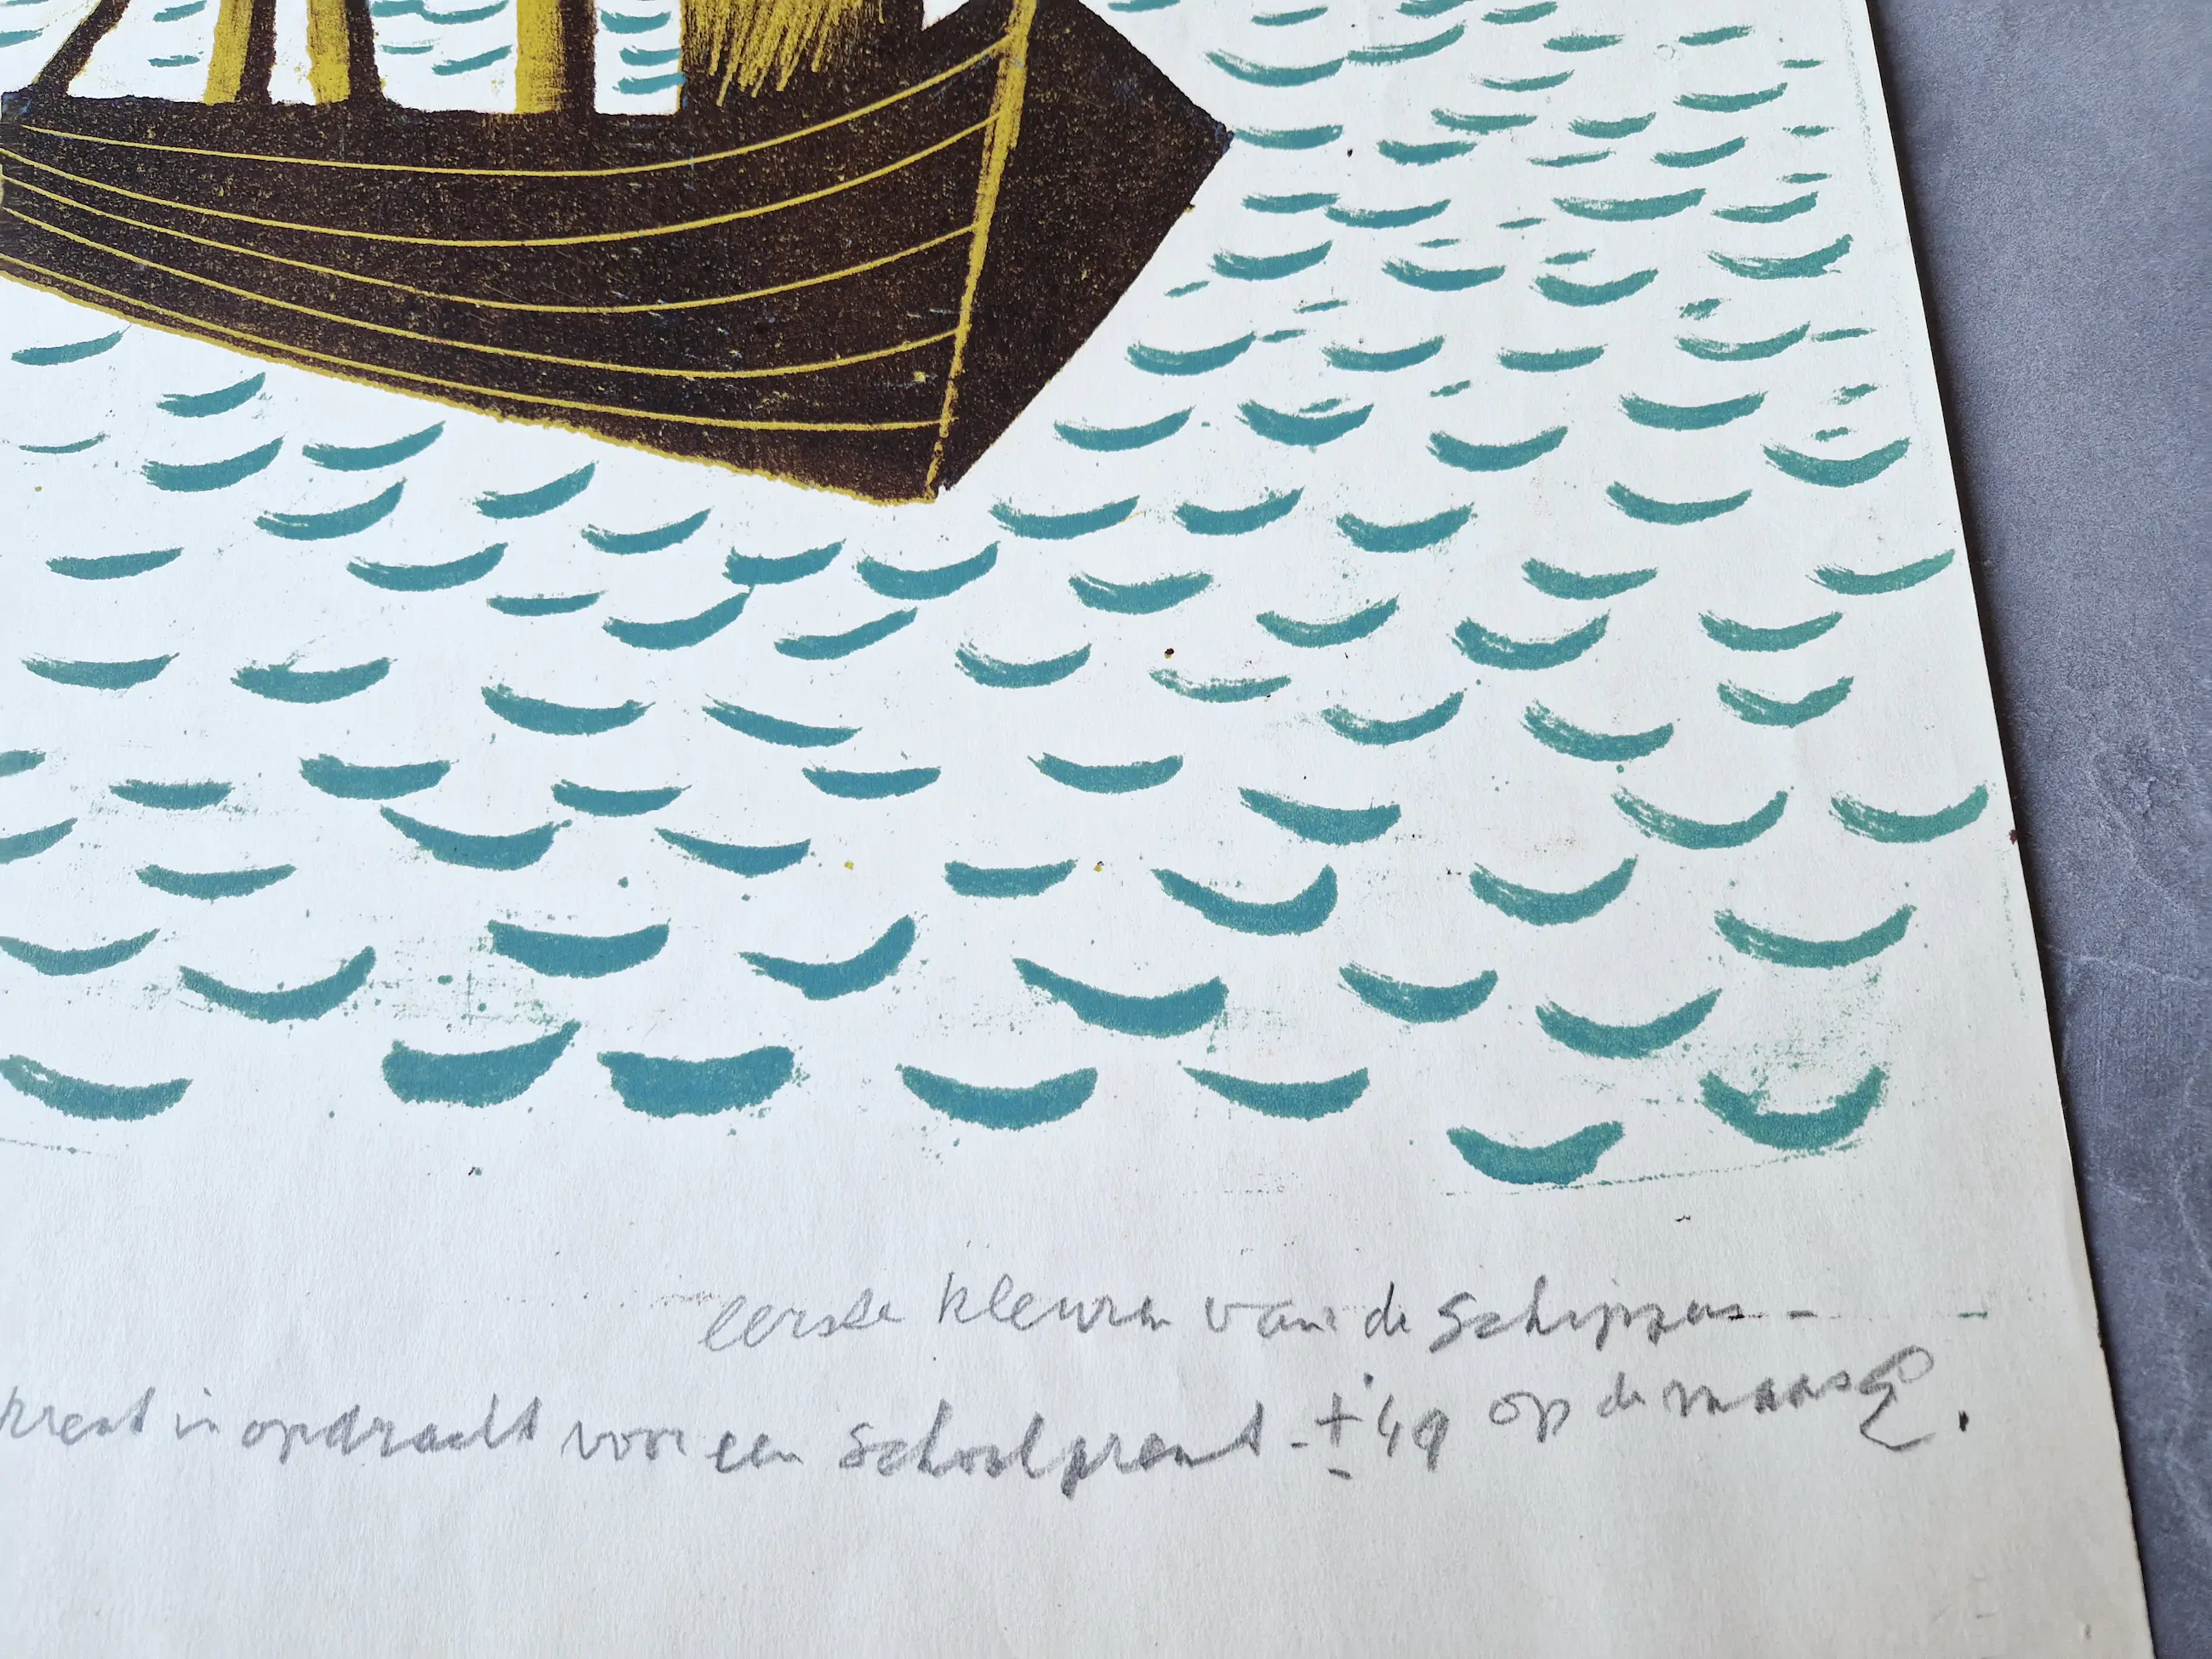 eerste kleuren van de schippers -
krent in opdracht voor een schoolprent - ± '49 op de maas